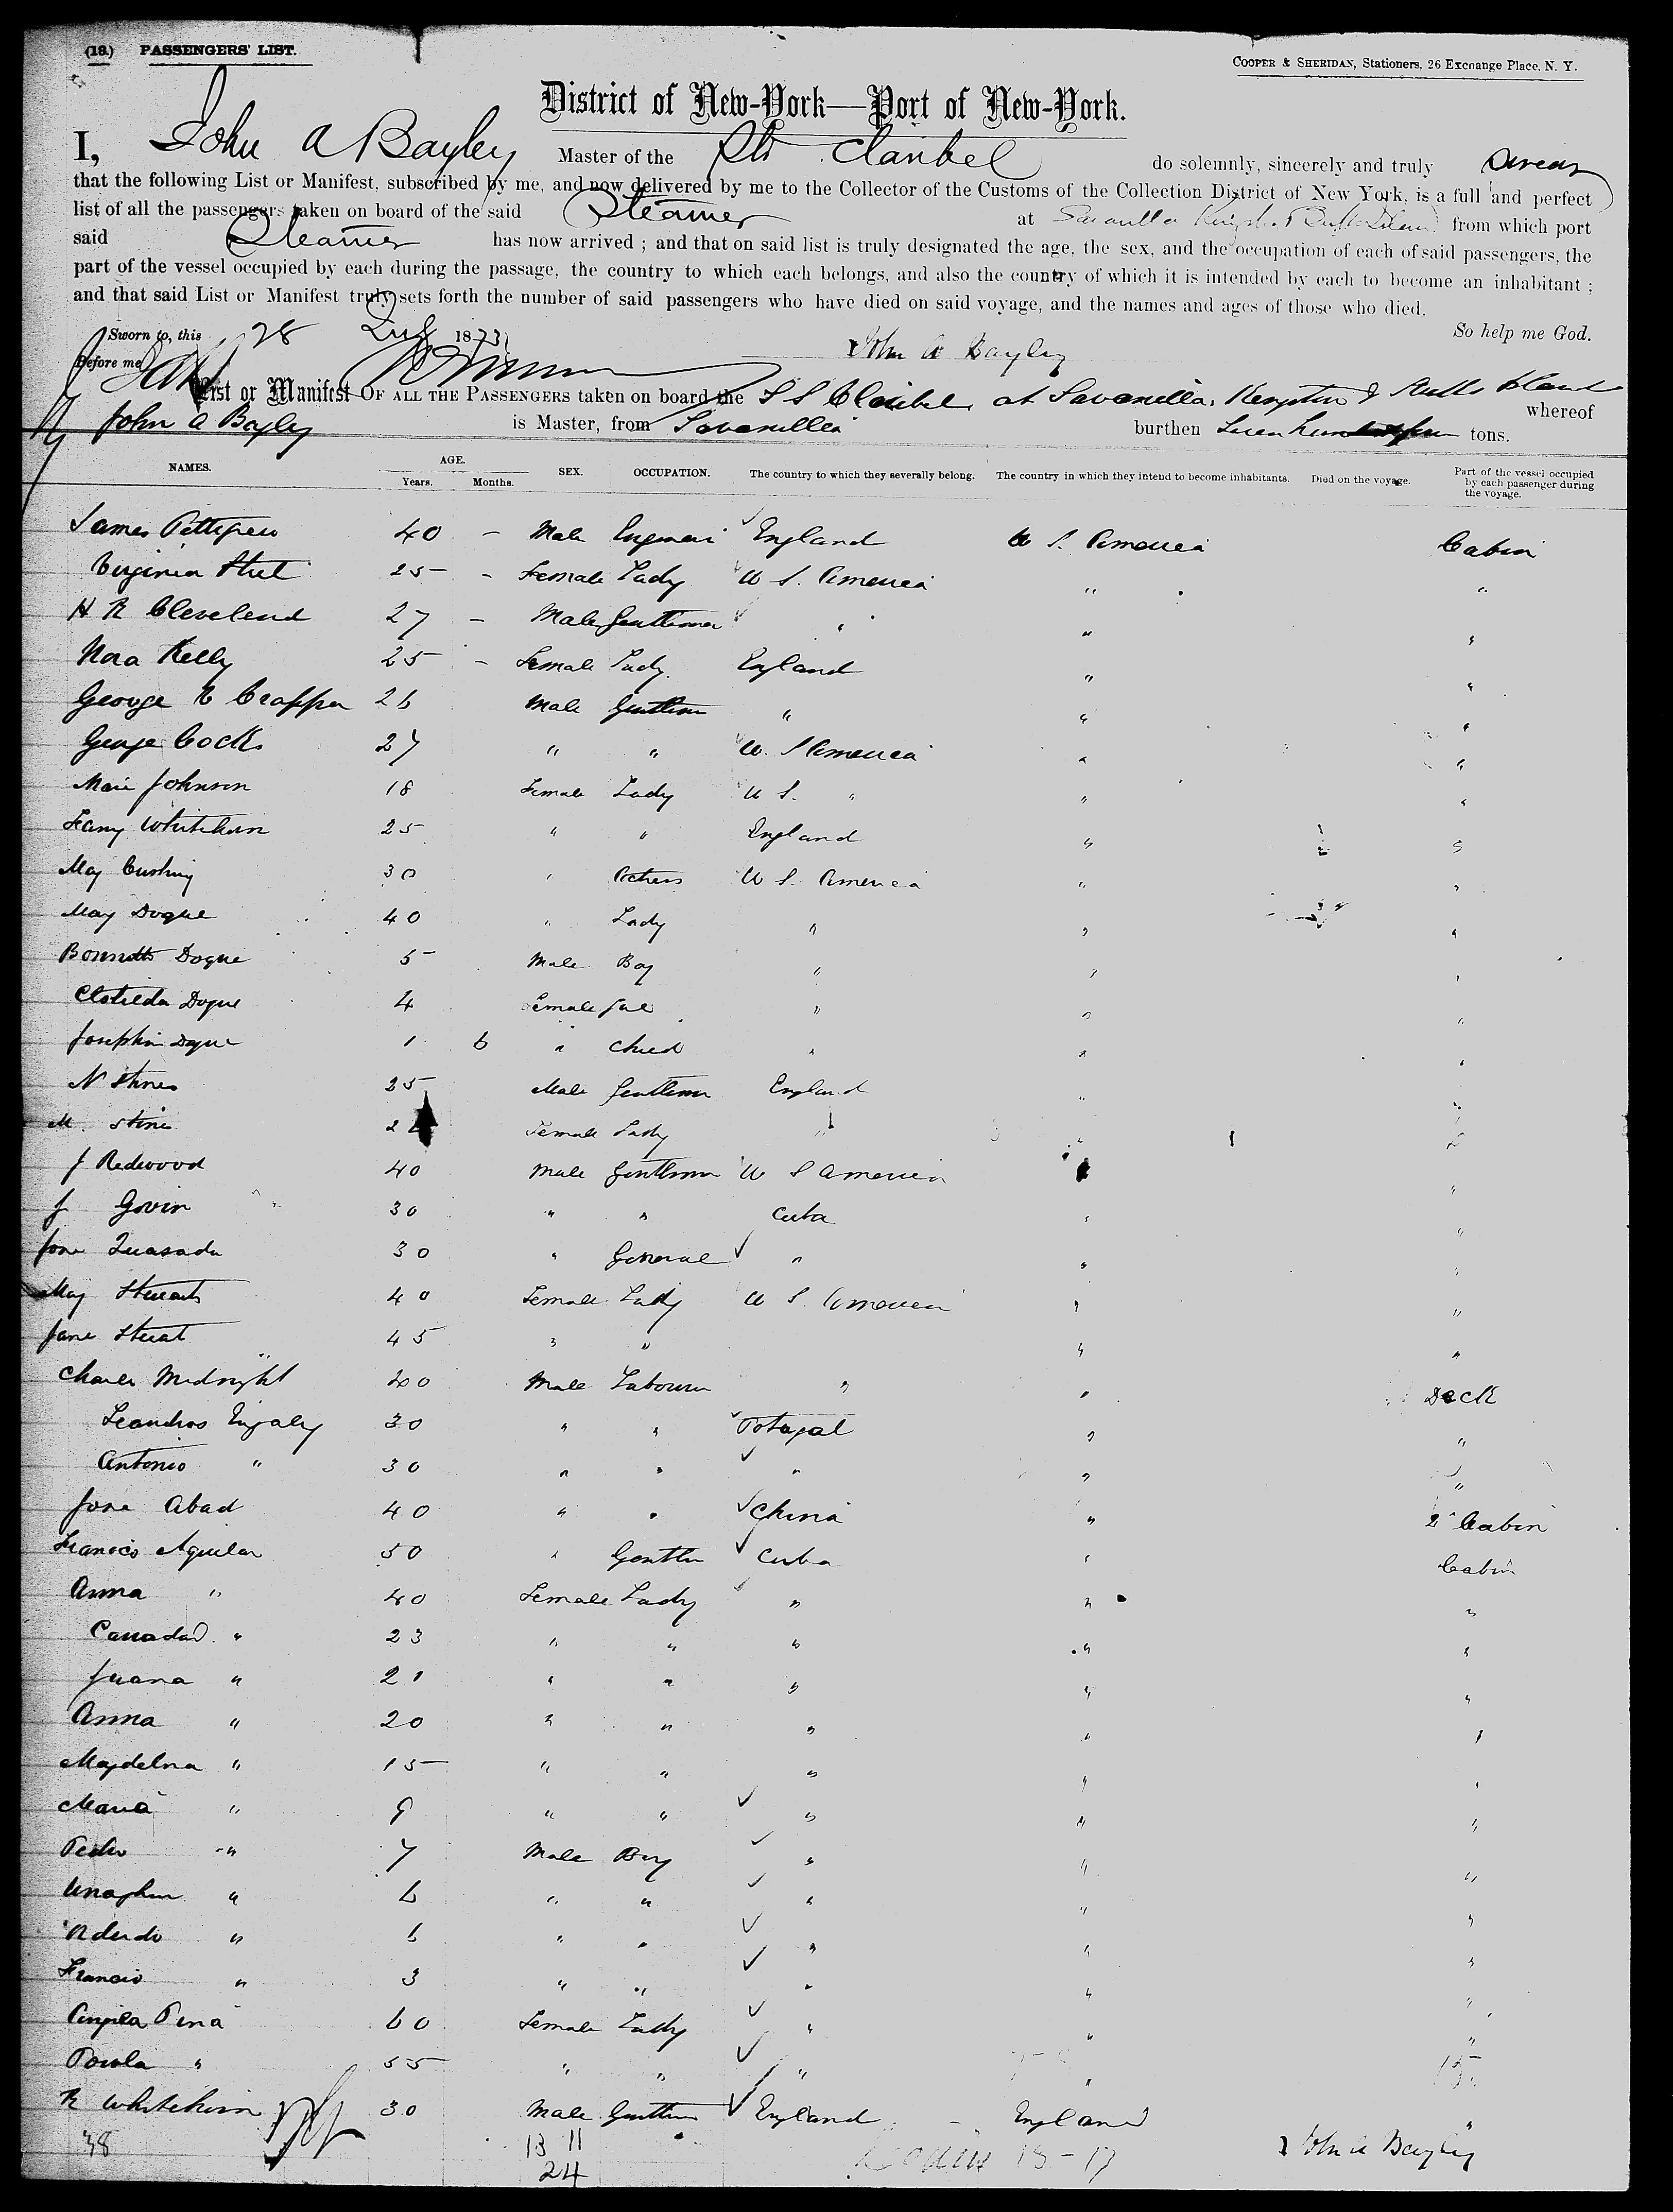 (18.) PASSENGERS' LIST.
COOPER & SHERIDAN, Stationers, 26 Exchange Place, N. Y.
District of New-York—Port of New-York.
I, John A Bayley Master of the Str Claribel do solemnly, sincerely and truly swear
that the following List or Manifest, subscribed by me, and now delivered by me to the Collector of the Customs of the Collection District of New York, is a full and perfect
list of all the passengers taken on board of the said Steamer at Savanilla from which port
said Steamer has now arrived ; and that on said list is truly designated the age, the sex, and the occupation of each of said passengers, the
part of the vessel occupied by each during the passage, the country to which each belongs, and also the country of which it is intended by each to become an inhabitant ;
and that said List or Manifest truly sets forth the number of said passengers who have died on said voyage, and the names and ages of those who died.
So help me God.
Sworn to, this 28 July 1873
John A Bayley
Before me
List or Manifest OF ALL THE PASSENGERS taken on board the S S Claribel, at Savanilla, Kingston & Rutts Island whereof
John A Bayley is Master, from Savanilla burthen tons.
NAMES. AGE. Years. Months. SEX. OCCUPATION. The country to which they severally belong. The country in which they intend to become inhabitants. Died on the voyage. Part of the vessel occupied by each passenger during the voyage.
James Pettigrew 40 - Male England U S. America Cabin
Virginia 25 - Female Lady U S. America " "
H R Cleveland 27 - Male Gentleman " " "
Nora Kelly 25 - Female Lady England " "
George R Crapper 26 Male Gentleman " " "
George Cocks 27 " " U. S America " "
Marie Johnson 18 Female Lady U S. " " "
Fanny Whitehorn 25 " " England " "
May Cushing 30 " Actress U S. America " "
May Dogue 40 " Lady " " "
Dogue 5 Male Boy " " "
Clotilda Dogue 4 Female " " "
Josephin Dogue 1 6 " Child " " "
N Stines 25 Male Gentleman England " "
M. Stine 2 Female Lady " " "
J Redwood 40 Male Gentleman U S America " "
J Govin 30 " " Cuba " "
Jose Quasada 30 " General " " "
May Steuart 40 Female Lady U S. America " "
Jane Steuat 45 " " " "
Charles Midnight 40 Male Labourer " " Deck
Leandros 30 " " Potugal " "
Antonio " 30 " " " " "
Jose Abad 40 " " China " 2" Cabin
Francico Aguilar 50 " Gentln Cuba " Cabin
Anna " 40 Female Lady " " "
" 23 " " " " "
Juana " 21 " " " " "
Anna " 20 " " " " "
Magdelna " 15 " " " " "
Maria " 9 " " " " "
Pedro " 7 Male Boy " " "
" 6 " " " " "
" 6 " " " " "
Francio " 3 " " " " "
Angela Pina 60 Female Lady " " "
Paula " 55 " " " "
R Whitehorn 30 Male Gentln England - England "
38 13 11
24
John A Bayley